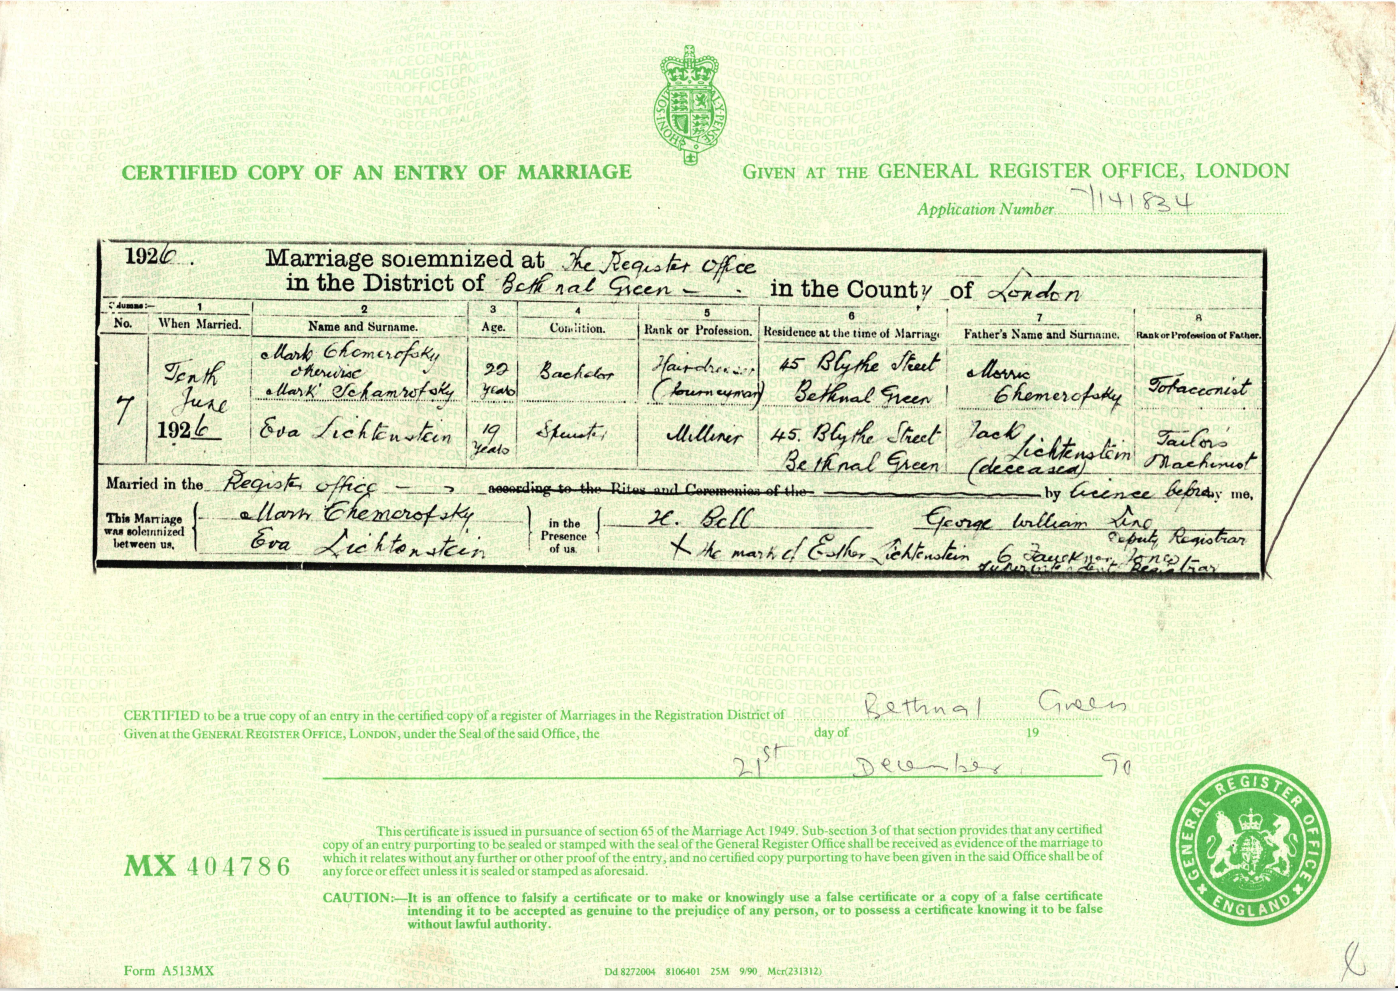 CERTIFIED COPY OF AN ENTRY OF MARRIAGE
GIVEN AT THE GENERAL REGISTER OFFICE, LONDON
Application Number 7/141834
1926. Marriage solemnized at The Register Office
in the District of Bethnal Green in the County of London
Columns:— 1 2 3 4 5 6 7 8
No. When Married. Name and Surname. Age. Condition. Rank or Profession. Residence at the time of Marriage Father's Name and Surname. Rank or Profession of Father.
7
Tenth
June
1926
Mark Chemerofsky
otherwise
Mark Schamrofsky
22
years
Bachelor
Hairdresser
(Journeyman)
45 Blythe Street
Bethnal Green
Morris
Chemerofsky
Tobacconist
Eva Lichtenstein
19
years
Spinster
Milliner
45. Blythe Street
Bethnal Green
Jack
Lichtenstein
(deceased)
Tailor's
Machinist
Married in the Register office according to the Rites and Ceremonies of the by licence before by me,
This Marriage
was solemnized
between us,
Mark Chemerofsky
Eva Lichtenstein
in the
Presence
of us.
H. Bell
X the mark of Esther Lichtenstein
George William
Deputy Registrar
Jones
Superintendent Registrar
CERTIFIED to be a true copy of an entry in the certified copy of a register of Marriages in the Registration District of Bethnal Green
Given at the GENERAL REGISTER OFFICE, LONDON, under the Seal of the said Office, the day of 19
21st December 90
This certificate is issued in pursuance of section 65 of the Marriage Act 1949. Sub-section 3 of that section provides that any certified
copy of an entry purporting to be sealed or stamped with the seal of the General Register Office shall be received as evidence of the marriage to
which it relates without any further or other proof of the entry, and no certified copy purporting to have been given in the said Office shall be of
any force or effect unless it is sealed or stamped as aforesaid.
MX 404786
CAUTION:—It is an offence to falsify a certificate or to make or knowingly use a false certificate or a copy of a false certificate
intending it to be accepted as genuine to the prejudice of any person, or to possess a certificate knowing it to be false
without lawful authority.
GENERAL REGISTER OFFICE
ENGLAND
Form A513MX
Dd 8272004 8106401 25M 9/90 Mcr(231312)